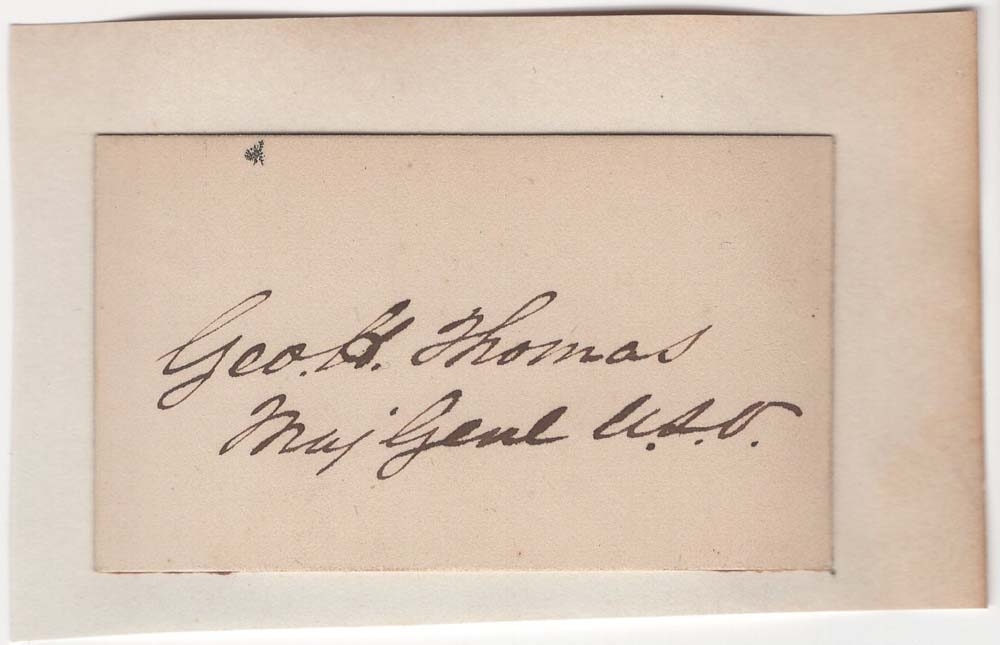 Geo. H. Thomas
Maj Genl U.S.V.